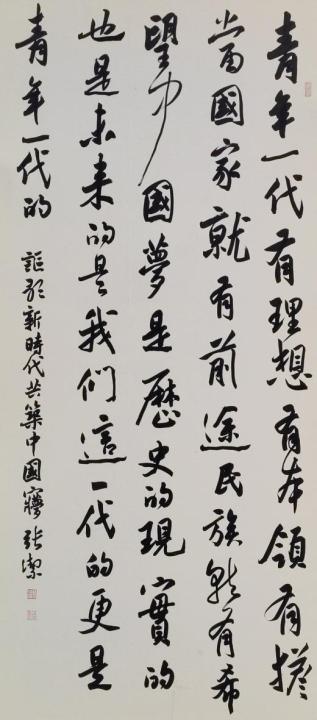 青年一代有理想有本領有擔
當國家就有前途民族就有希
望中國夢是歷史的現實的
也是未来的是我們這一代的更是
青年一代的
謳歌新時代共築中國夢 張潔